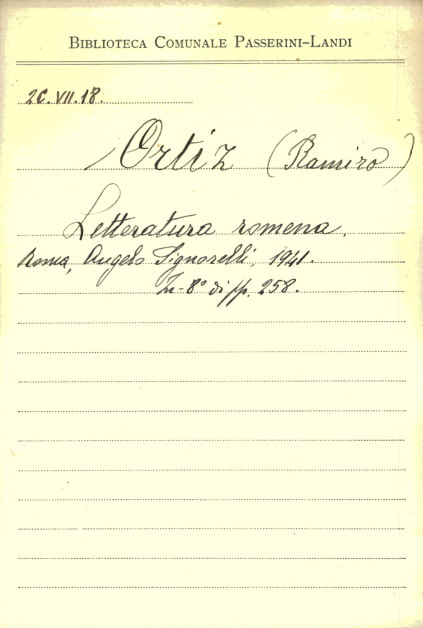 BIBLIOTECA COMUNALE PASSERINI-LANDI
2C.VII.18.
Ortiz (Ramiro)
Letteratura romena.
Roma, Angelo Signorelli, 1941.
In-8° di pp. 258.